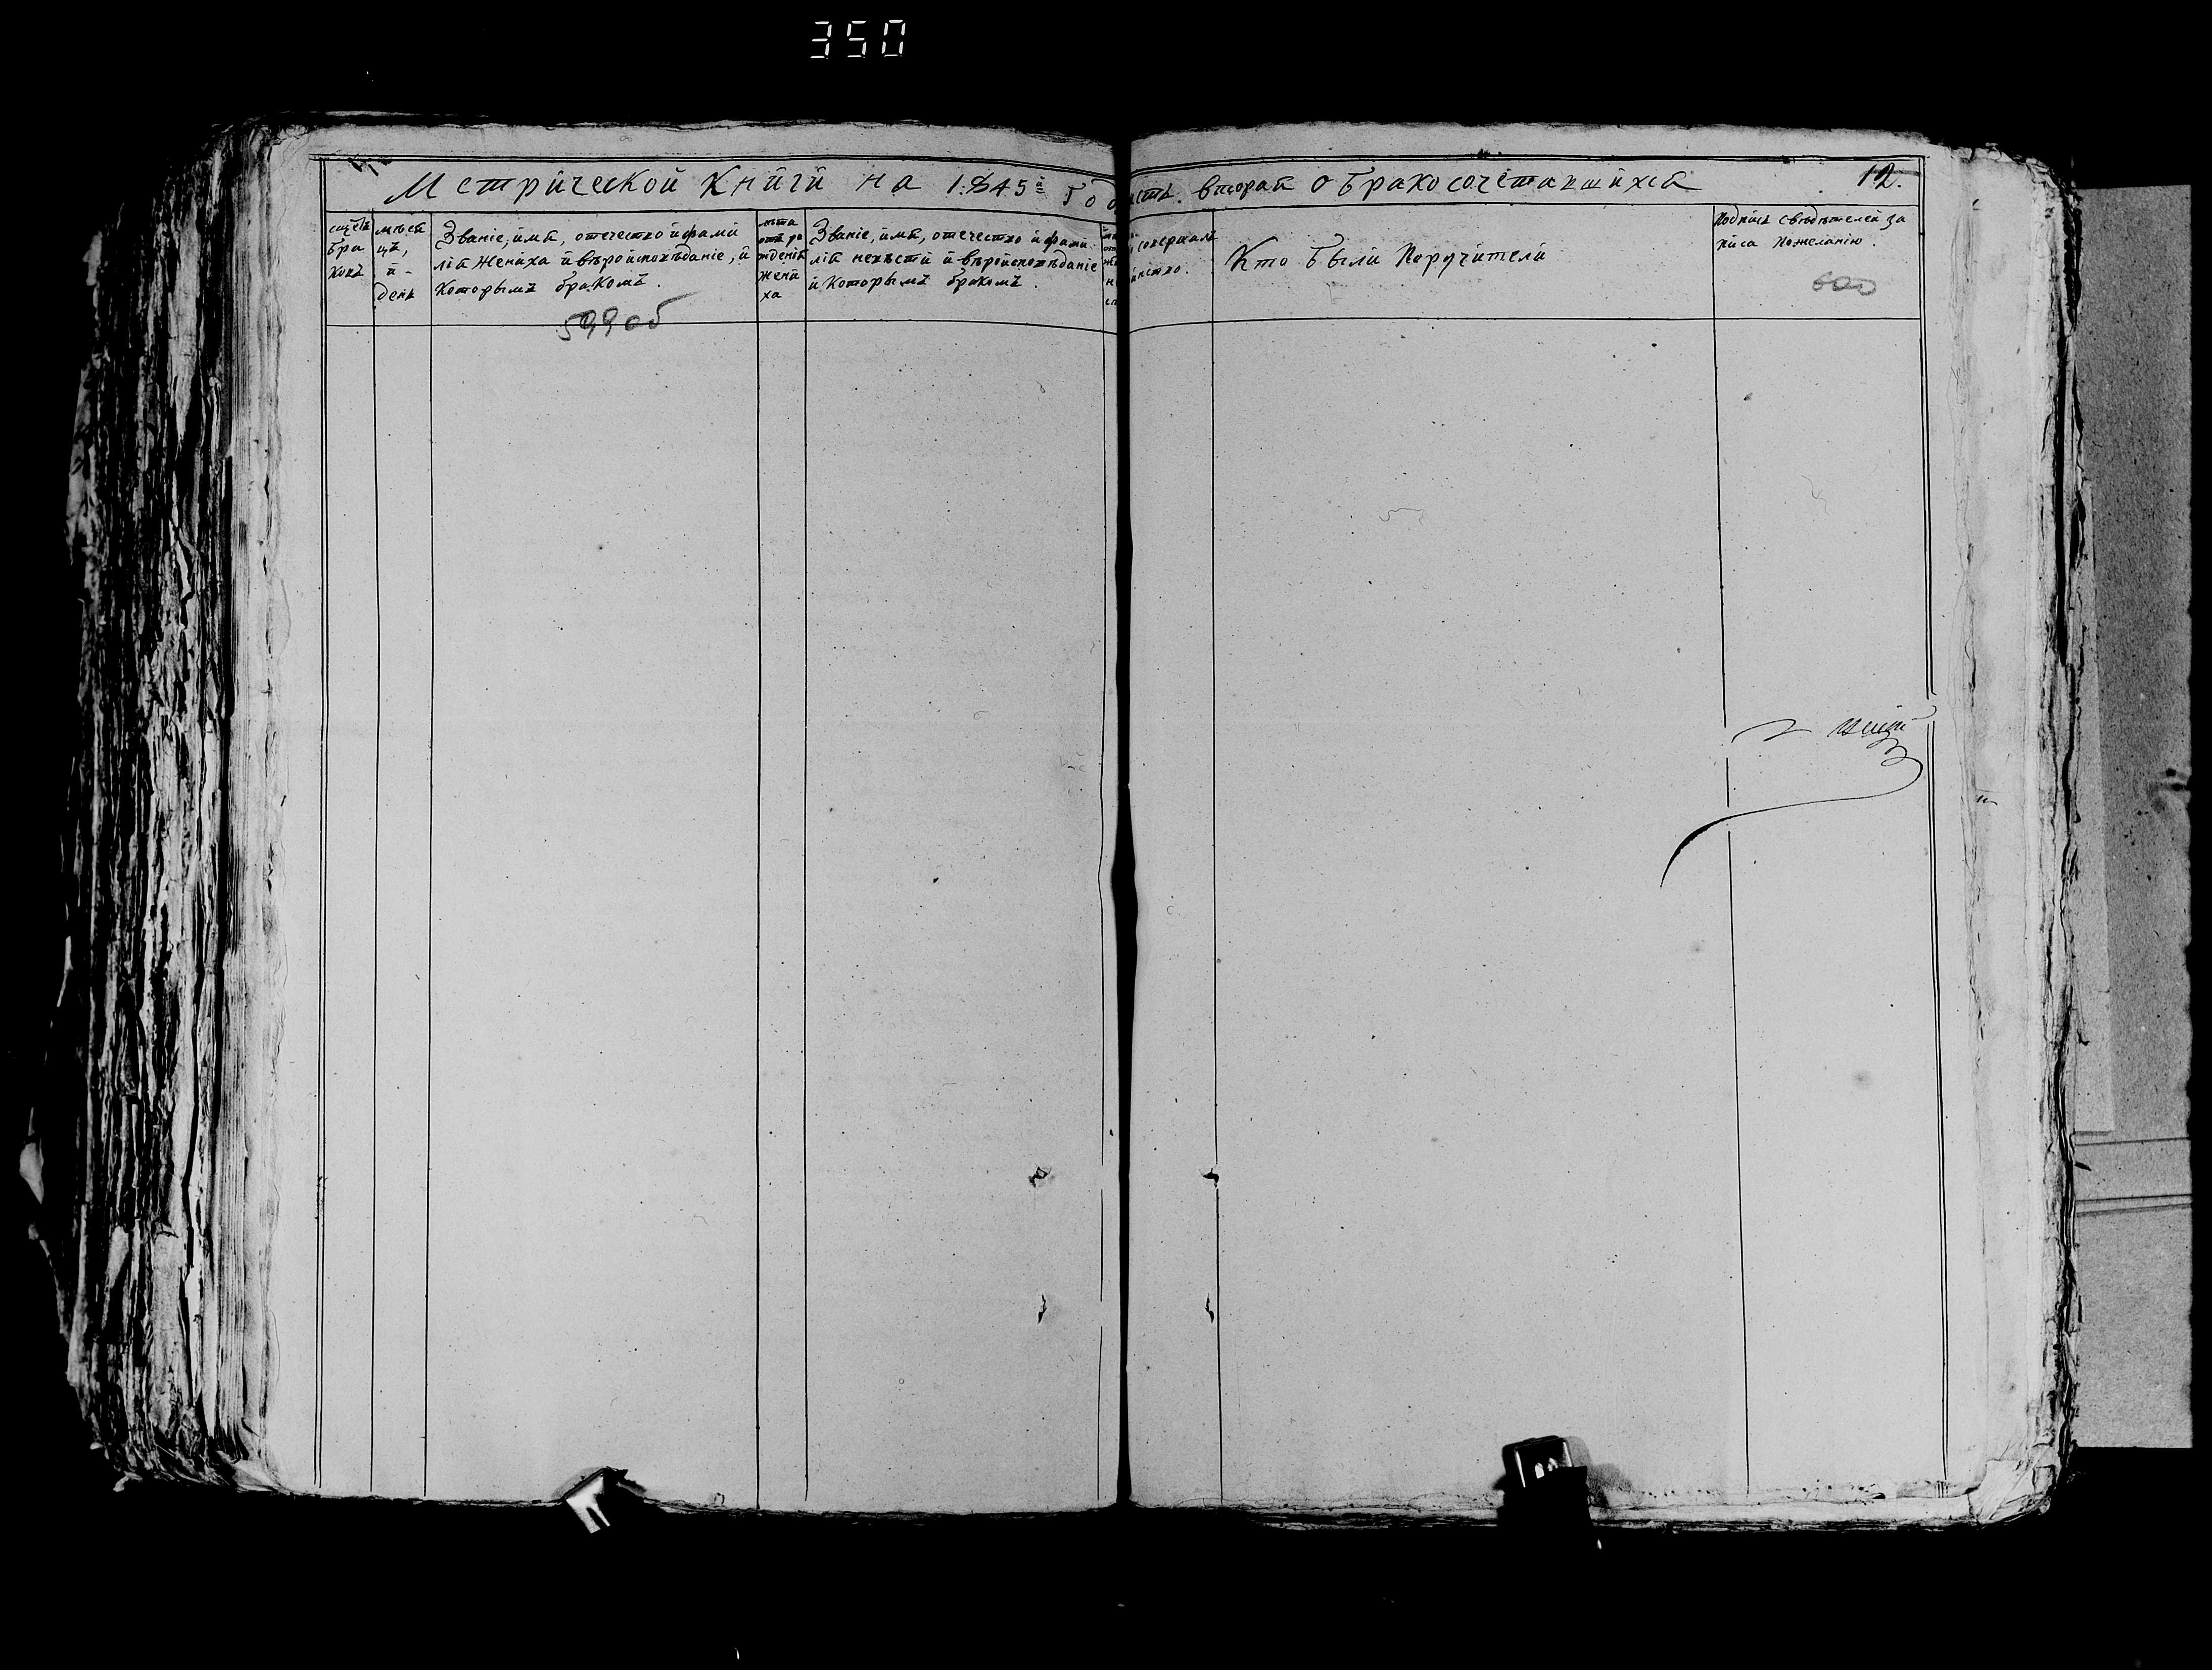 350
Метрической Книги на 1845й Год
сть вторая о Бракосочетавшихся
12.
счетъ
бра
ковъ
мѣся
цъ,
и -
день
Званіе, имя, отечество и фами
лія Жениха и вѣроисповѣданіе, и
Которымъ бракомъ.
599 об
лѣта
отъ ро
жденія
жени
ха
Званіе, имя, отечество и фами
лія невѣсти и вѣроисповѣданіе
и Которымъ бракомъ.
совершалъ
Кто были Поручители
Подписъ свѣдѣтелей за
писа по желанію.
600